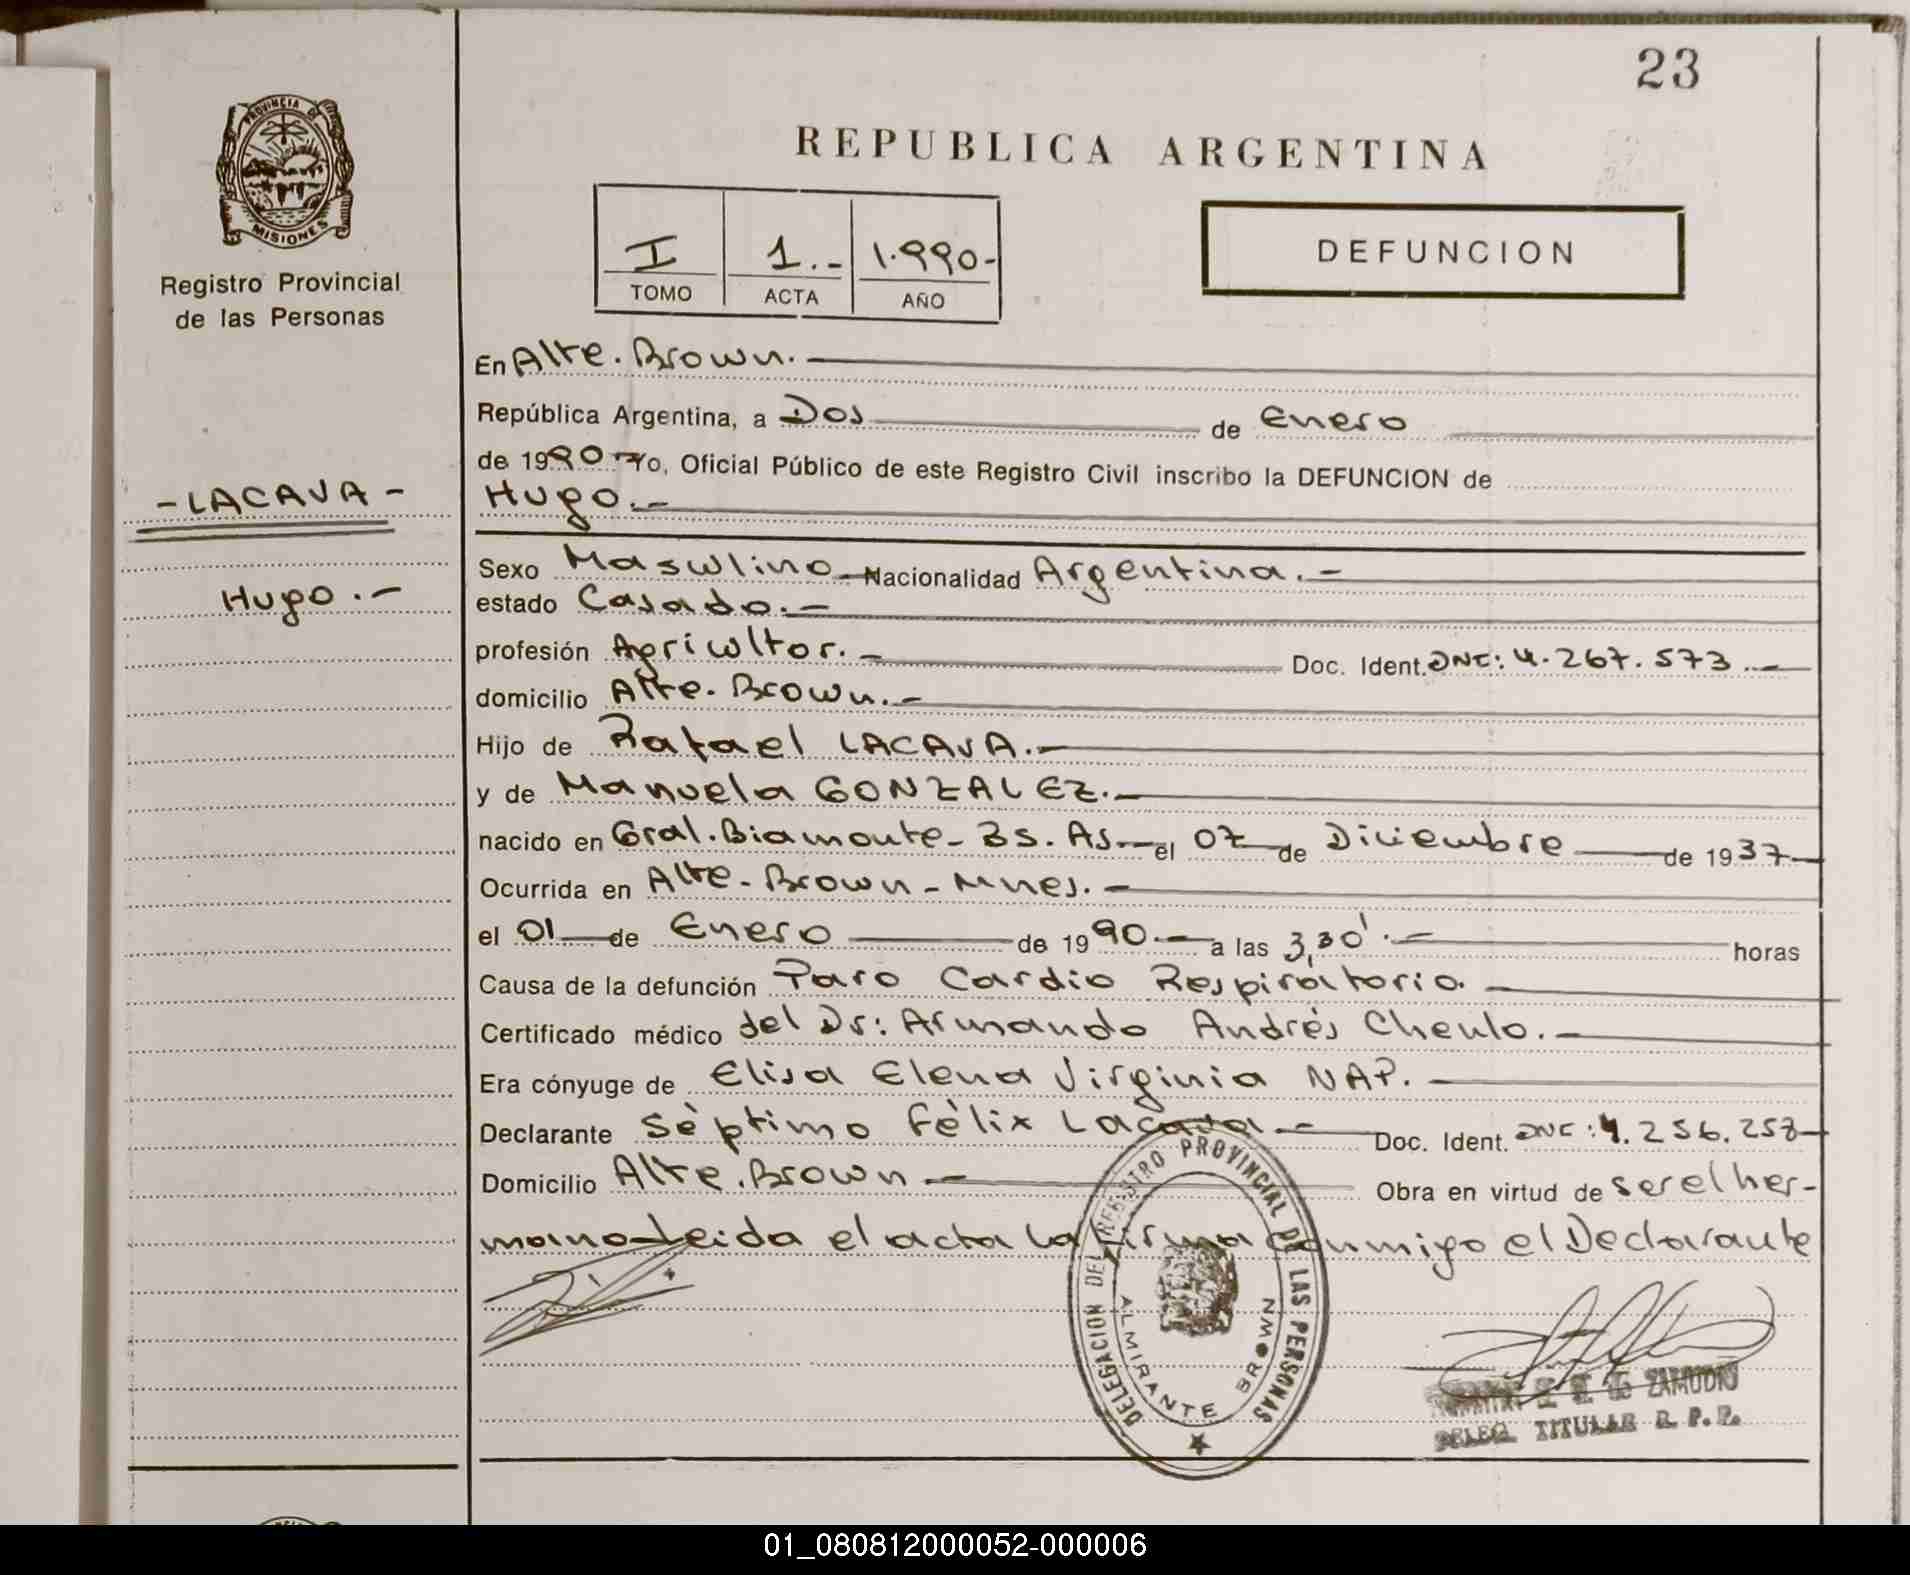 23
PROVINCIA DE
MISIONES
Registro Provincial
de las Personas
REPUBLICA ARGENTINA
I 1.- 1.990-
TOMO ACTA AÑO
DEFUNCION
En Alte. Brown.
República Argentina, a Dos de Enero
de 1990 Yo, Oficial Público de este Registro Civil inscribo la DEFUNCION de
- LACAVA -
Hugo.-
Hugo.-
Sexo Masculino Nacionalidad Argentina.-
estado Casado.-
profesión Agricultor.- Doc. Ident. DNI: 4.267.573.-
domicilio Alte. Brown.-
Hijo de Rafael LACAVA.-
y de Manuela GONZALEZ.-
nacido en Gral. Biamonte - Bs. As- el 07 de Diciembre de 1937-
Ocurrida en Alte- Brown - Mnes.-
el 01 de Enero de 1990.- a las 3,30'.- horas
Causa de la defunción Paro Cardio Respiratorio.
Certificado médico del Dr: Armando Andrés
Era cónyuge de Elisa Elena Virginia NAP.-
Declarante Séptimo Félix Lacava.- Doc. Ident. DNI: 4.256.257
Domicilio Alte. Brown - Obra en virtud de ser el her-
mano-Leida el acta la firma conmigo el Declarante
DELEGACION DEL REGISTRO PROVINCIAL DE LAS PERSONAS
ALMIRANTE BROWN
de ZAMUDIO
DELEG. TITULAR R. P. P.
01_080812000052-000006